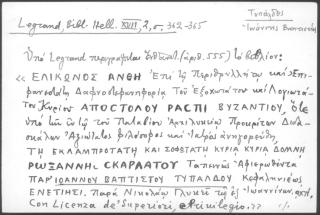 Legrand, Bibl. Hell. XVIII, 2, σ. 362-365
Τυπάλδος
-Ἰωάννης Βαπτιστής
Ὑπὸ Legrand περιγράφεται (ἀριθ. 555) τὸ βιβλίον:
« ΕΛΙΚΩΝΟΣ ΑΝΘΗ Ἐπὶ τῇ Περιθρυλλήτῳ καὶ Ἐπι-
φανεστάτῃ Δαφνοστεφηφορίᾳ Τοῦ Ἐξοχωτάτου καὶ Λογιωτά-
του Κυρίου ΑΠΟΣΤΟΛΟΥ ΡΑΣΠΙ ΒΥΖΑΝΤΙΟΥ, Ὅτε
ὑπὸ τῶν ἐν τῷ τοῦ Παταβίου Ἀρχιλυκείῳ Προκρίτων Διδα-
σκάλων Ἀξιωθεὶς φιλόσοφος καὶ Ἰατρὸς ἀνηγορεύθη,
ΤΗ ΕΚΛΑΜΠΡΟΤΑΤΗ ΚΑΙ ΣΟΦΩΤΑΤΗ ΚΥΡΙΑ ΚΥΡΙΑ ΔΟΜΝΗ
ΡΩΞΑΝΝΗΣ ΣΚΑΡΛΑΤΟΥ Ταπεινῶς Ἀφιερωθέντα
ΠΑΡ' ΙΩΑΝΝΟΥ ΒΑΠΤΙΣΤΟΥ ΤΥΠΑΛΔΟΥ Κεφαλληνέως
ΕΝΕΤΙΗΣΙ. Παρὰ Νικολάῳ Γλυκεῖ τῷ ἐξ Ἰωαννίνων.
Con Licenza de' Superiori, e Privilegio. »